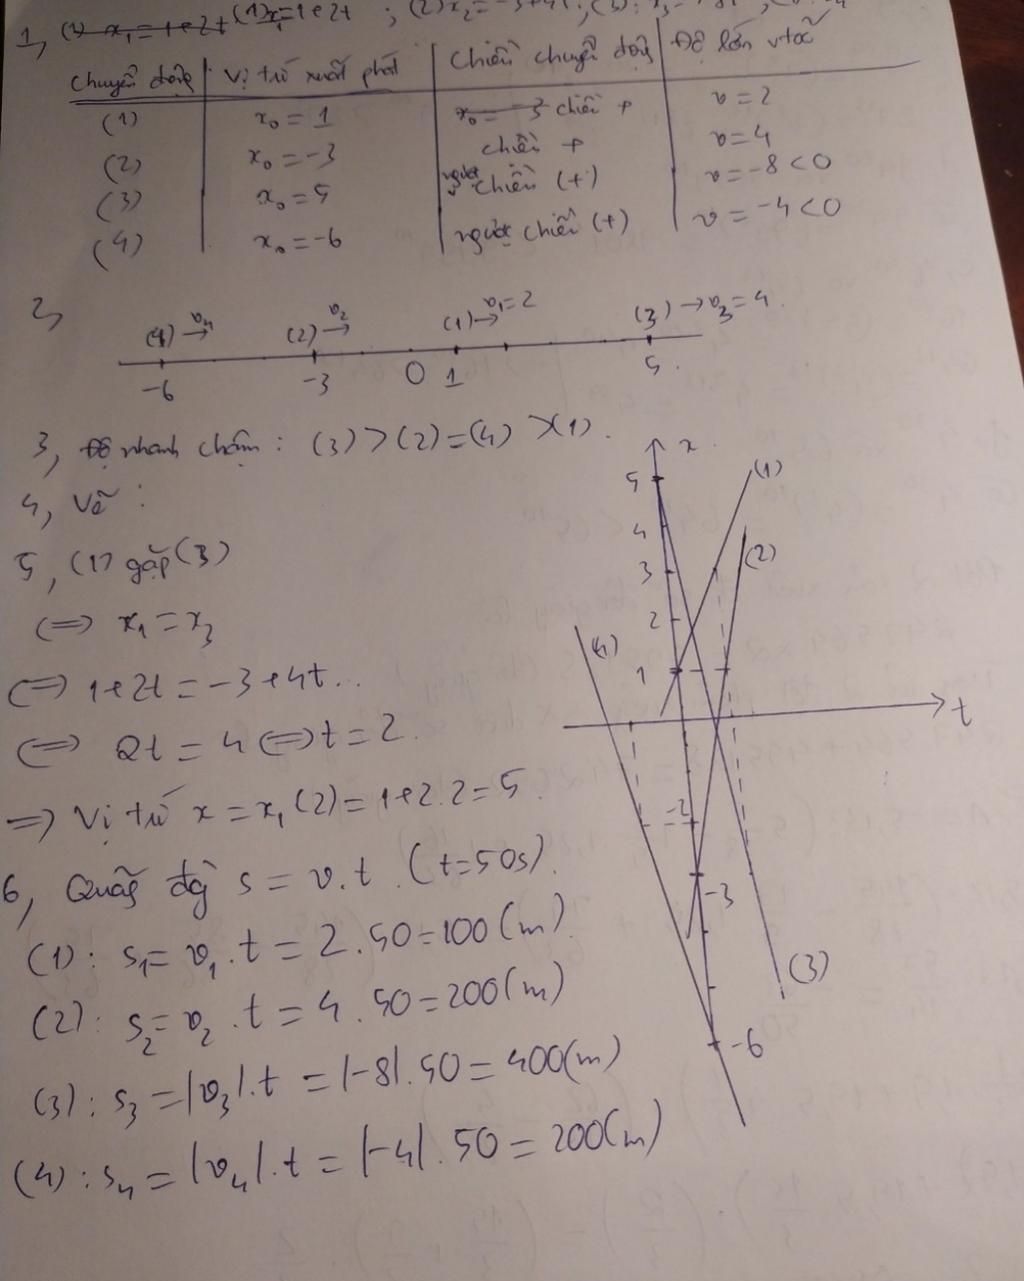 1, (1) x₁ = 1+2t (1) x₁ = 1+2t ; (2) x₂ = -3+4t ; (3):
Chuyển động | Vị trí xuất phát | Chiều chuyển động | Độ lớn vtốc
(1) | x₀ = 1 | x₀ = -3 chiều + | v = 2
(2) | x₀ = -3 | chiều + | v = 4
(3) | x₀ = 5 | ngược chiều (+) | v = -8 < 0
(4) | x₀ = -6 | ngược chiều (+) | v = -4 < 0
2,
(4) → v₄ (2) → v₂ (1) → v₁ = 2 (3) → v₃ = 4
-6 -3 0 1 5
3, Độ nhanh chậm: (3) > (2) = (4) > (1).
4, Vẽ:
5, (1) gặp (3)
⇔ x₁ = x₃
⇔ 1+2t = -3+4t..
⇔ 2t = 4 ⇔ t = 2.
⇒ Vị trí x = x₁(2) = 1+2.2 = 5.
6, Quãng đg s = v.t. (t=50s).
(1): s₁ = v₁.t = 2.50 = 100(m).
(2): s₂ = v₂.t = 4.50 = 200(m)
(3): s₃ = |v₃|.t = |-8|.50 = 400(m)
(4): s₄ = |v₄|.t = |-4|.50 = 200(m)
x
5
4
3
2
1
-2
-3
-6
t
(1)
(2)
(3)
(4)